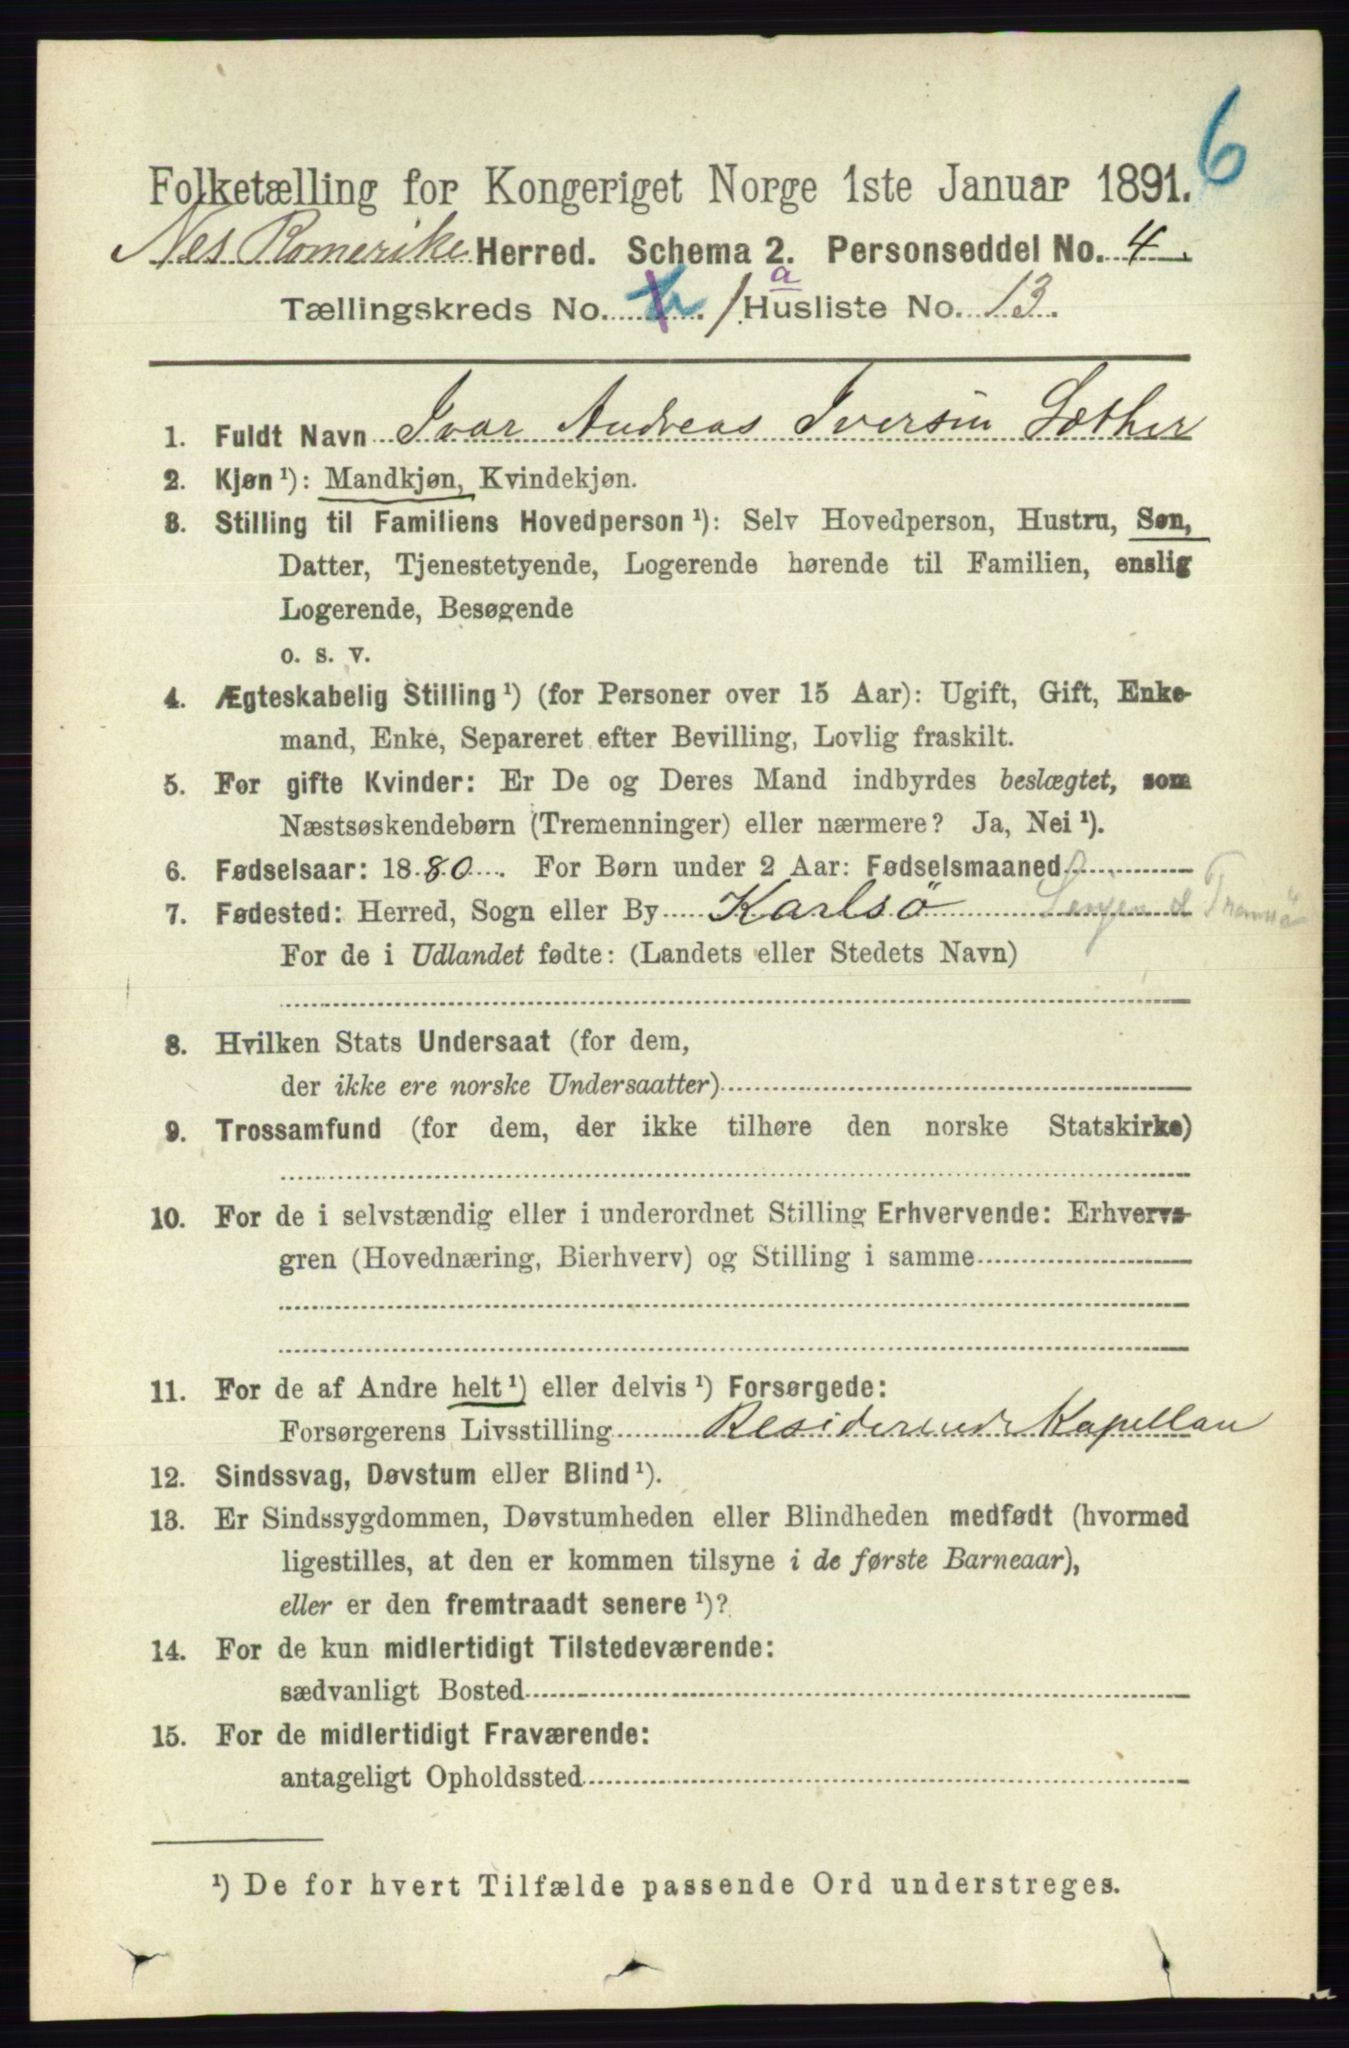 6
Folketælling for Kongeriget Norge 1ste Januar 1891.
Nes Romerike Herred. Schema 2. Personseddel No. 4.
Tællingskreds No. 1. a Husliste No. 13.
1. Fuldt Navn Ivar Andreas Iversen Sæther
2. Kjøn ¹): Mandkjøn, Kvindekjøn.
3. Stilling til Familiens Hovedperson ¹): Selv Hovedperson, Hustru, Søn,
Datter, Tjenestetyende, Logerende hørende til Familien, enslig
Logerende, Besøgende
o. s. v.
4. Ægteskabelig Stilling ¹) (for Personer over 15 Aar): Ugift, Gift, Enke-
mand, Enke, Separeret efter Bevilling, Lovlig fraskilt.
5. For gifte Kvinder: Er De og Deres Mand indbyrdes beslægtet, som
Næstsøskendebørn (Tremenninger) eller nærmere? Ja, Nei ¹).
6. Fødselsaar: 1880. For Børn under 2 Aar: Fødselsmaaned
7. Fødested: Herred, Sogn eller By Karlsö Tromsö
For de i Udlandet fødte: (Landets eller Stedets Navn)
8. Hvilken Stats Undersaat (for dem,
der ikke ere norske Undersaatter)
9. Trossamfund (for dem, der ikke tilhøre den norske Statskirke)
10. For de i selvstændig eller i underordnet Stilling Erhvervende: Erhvervs-
gren (Hovednæring, Bierhverv) og Stilling i samme
11. For de af Andre helt ¹) eller delvis ¹) Forsørgede:
Forsørgerens Livsstilling Residerende Kapellan
12. Sindssvag, Døvstum eller Blind ¹).
13. Er Sindssygdommen, Døvstumheden eller Blindheden medfødt (hvormed
ligestilles, at den er kommen tilsyne i de første Barneaar),
eller er den fremtraadt senere ¹)?
14. For de kun midlertidigt Tilstedeværende:
sædvanligt Bosted
15. For de midlertidigt Fraværende:
antageligt Opholdssted
¹) De for hvert Tilfælde passende Ord understreges.